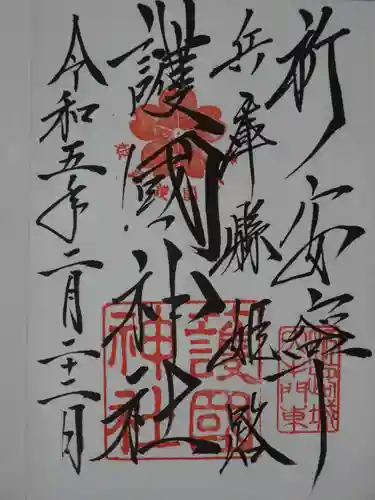 祈安寧
兵庫縣姫路
護國神社
令和五年二月二十二日
護國
神社